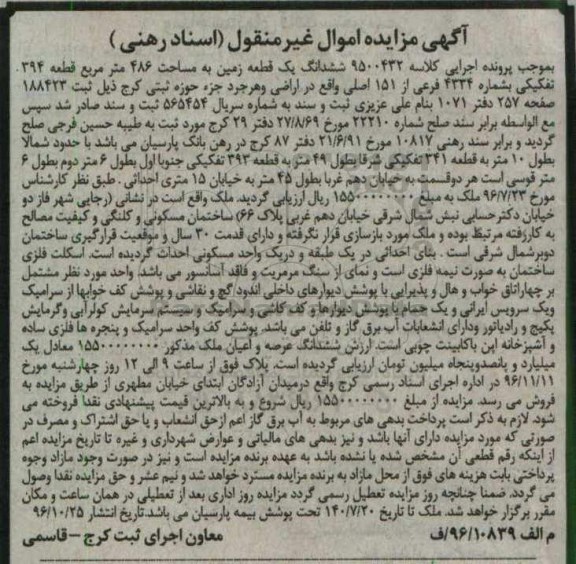 آگهی مزایده اموال غیر منقول (اسناد رهنی)
بموجب پرونده اجرایی کلاسه ۹۵۰۰۴۳۲ ششدانگ یک قطعه زمین به مساحت ۴۸۶ متر مربع قطعه ۳۹۴
تفکیکی بشماره ۴۳۳۴ فرعی از ۱۵۱ اصلی واقع در اراضی وهرجرد جزء حوزه ثبتی کرج ذیل ثبت ۱۸۸۴۲۳
صفحه ۲۵۷ دفتر ۱۰۷۱ بنام علی عزیزی ثبت و سند به شماره سریال ۵۶۵۴۵۴ ثبت و سند صادر شد سپس
مع الواسطه برابر سند صلح شماره ۲۲۲۱۰ مورخ ۲۷/۸/۶۹ دفتر ۲۹ کرج مورد ثبت به طیبه حسین فرجی صلح
گردید و برابر سند رهنی ۱۰۸۱۷ مورخ ۲۱/۶/۹۱ دفتر ۸۷ کرج در رهن بانک پارسیان می باشد با حدود شمالا
بطول ۱۰ متر به قطعه ۳۴۱ تفکیکی شرقا بطول ۴۹ متر به قطعه ۳۹۳ تفکیکی جنوبا اول بطول ۶ متر دوم بطول ۶
متر قوسی است هر دو قسمت به خیابان دهم غربا بطول ۴۵ متر به خیابان ۱۵ متری احداثی . طبق نظر کارشناس
مورخ ۹۶/۷/۲۳ ملک به مبلغ ۱۵۵۰۰۰۰۰۰۰۰ ریال ارزیابی گردید. ملک واقع است در نشانی (رجایی شهر فاز دو
خیابان دکتر حسابی نبش شمال شرقی خیابان دهم غربی پلاک ۶۶) ساختمان مسکونی و کلنگی و کیفیت مصالح
به کار رفته مرتبط بوده و ملک مورد بازسازی قرار نگرفته و دارای قدمت ۳۰ سال و موقعیت قرارگیری ساختمان
دوبر شمال شرقی است . بنای احداثی در یک طبقه و در یک واحد مسکونی احداث گردیده است. اسکلت فلزی
ساختمان به صورت نیمه فلزی است و نمای از سنگ مرمریت و فاقد آسانسور می باشد. واحد مورد نظر مشتمل
بر چهار اتاق خواب و هال و پذیرایی با پوشش دیوارهای داخلی اندود گچ و نقاشی و پوشش کف خوابها از سرامیک
ویک سرویس ایرانی و یک حمام با پوشش دیوارها و کف کاشی و سرامیک و سیستم سرمایش کولر آبی وگرمایش
پکیج و رادیاتور ودارای انشعابات آب برق گاز و تلفن می باشد. پوشش کف واحد سرامیک و پنجره ها فلزی ساده
و آشپزخانه اپن با کابینت چوبی است. ارزش ششدانگ عرصه و اعیان ملک مذکور ۱۵۵۰۰۰۰۰۰۰۰ معادل یک
میلیارد و پانصد و پنجاه میلیون تومان ارزیابی گردیده است. پلاک فوق از ساعت ۹ الی ۱۲ روز چهارشنبه مورخ
۹۶/۱۱/۱۱ در اداره اجرای اسناد رسمی کرج واقع در میدان آزادگان ابتدای خیابان مطهری از طریق مزایده به
فروش می رسد. مزایده از مبلغ ۱۵۵۰۰۰۰۰۰۰۰ ریال شروع و به بالاترین قیمت پیشنهادی نقدا فروخته می
شود. لازم به ذکر است پرداخت بدهی های مربوط به آب برق گاز اعم از حق انشعاب و یا حق اشتراک و مصرف در
صورتی که مورد مزایده دارای آنها باشد و نیز بدهی های مالیاتی و عوارض شهرداری و غیره تا تاریخ مزایده اعم
از اینکه رقم قطعی آن مشخص شده یا نشده باشد به عهده برنده مزایده است و نیز در صورت وجود مازاد وجوه
پرداختی بابت هزینه های فوق از محل مازاد به برنده مزایده مسترد خواهد شد و نیم عشر و حق مزایده نقدا وصول
می گردد. ضمنا چنانچه روز مزایده تعطیل رسمی گردد مزایده روز اداری بعد از تعطیلی در همان ساعت و مکان
مقرر برگزار خواهد شد. ملک تا تاریخ ۱۴۰/۷/۲۰ تحت پوشش بیمه پارسیان می باشد. تاریخ انتشار ۹۶/۱۰/۲۵
م الف ۹۶/۱۰۸۳۹/ف معاون اجرای ثبت کرج - قاسمی